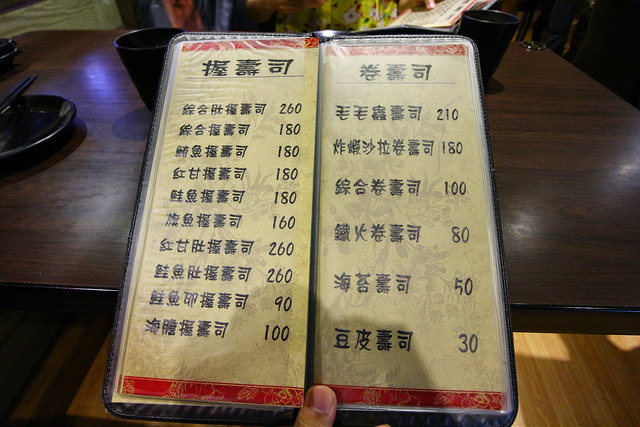 握壽司
綜合肚握壽司 260
綜合握壽司 180
鮪魚握壽司 180
紅甘握壽司 180
鮭魚握壽司 180
旗魚握壽司 160
紅甘肚握壽司 260
鮭魚肚握壽司 260
鮭魚卵握壽司 90
海膽握壽司 100
卷壽司
毛毛蟲壽司 210
炸蝦沙拉卷壽司 180
綜合卷壽司 100
鐵火卷壽司 80
海苔壽司 50
豆皮壽司 30